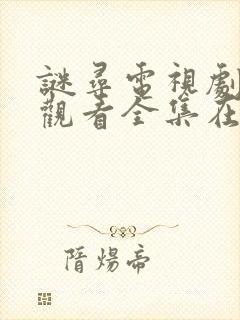 謎尋電視劇
觀看全集在
隋煬帝